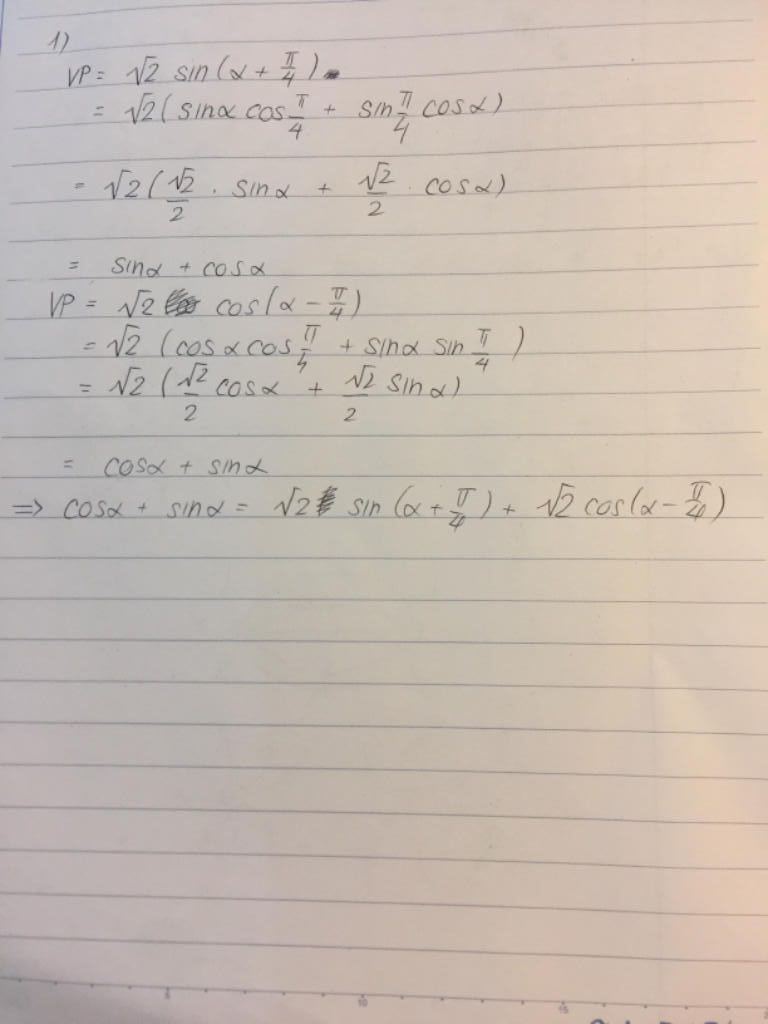 1)
VP = √2 sin(α + π/4)
= √2(sinα cos π/4 + sin π/4 cosα)
= √2(√2/2 . sinα + √2/2 . cosα)
= sinα + cosα
VP = √2 cos(α − π/4)
= √2 (cosα cos π/4 + sinα sin π/4)
= √2 (√2/2 cosα + √2/2 sinα)
= cosα + sinα
=> cosα + sinα = √2 sin(α + π/4) + √2 cos(α − π/4)
5 10 15